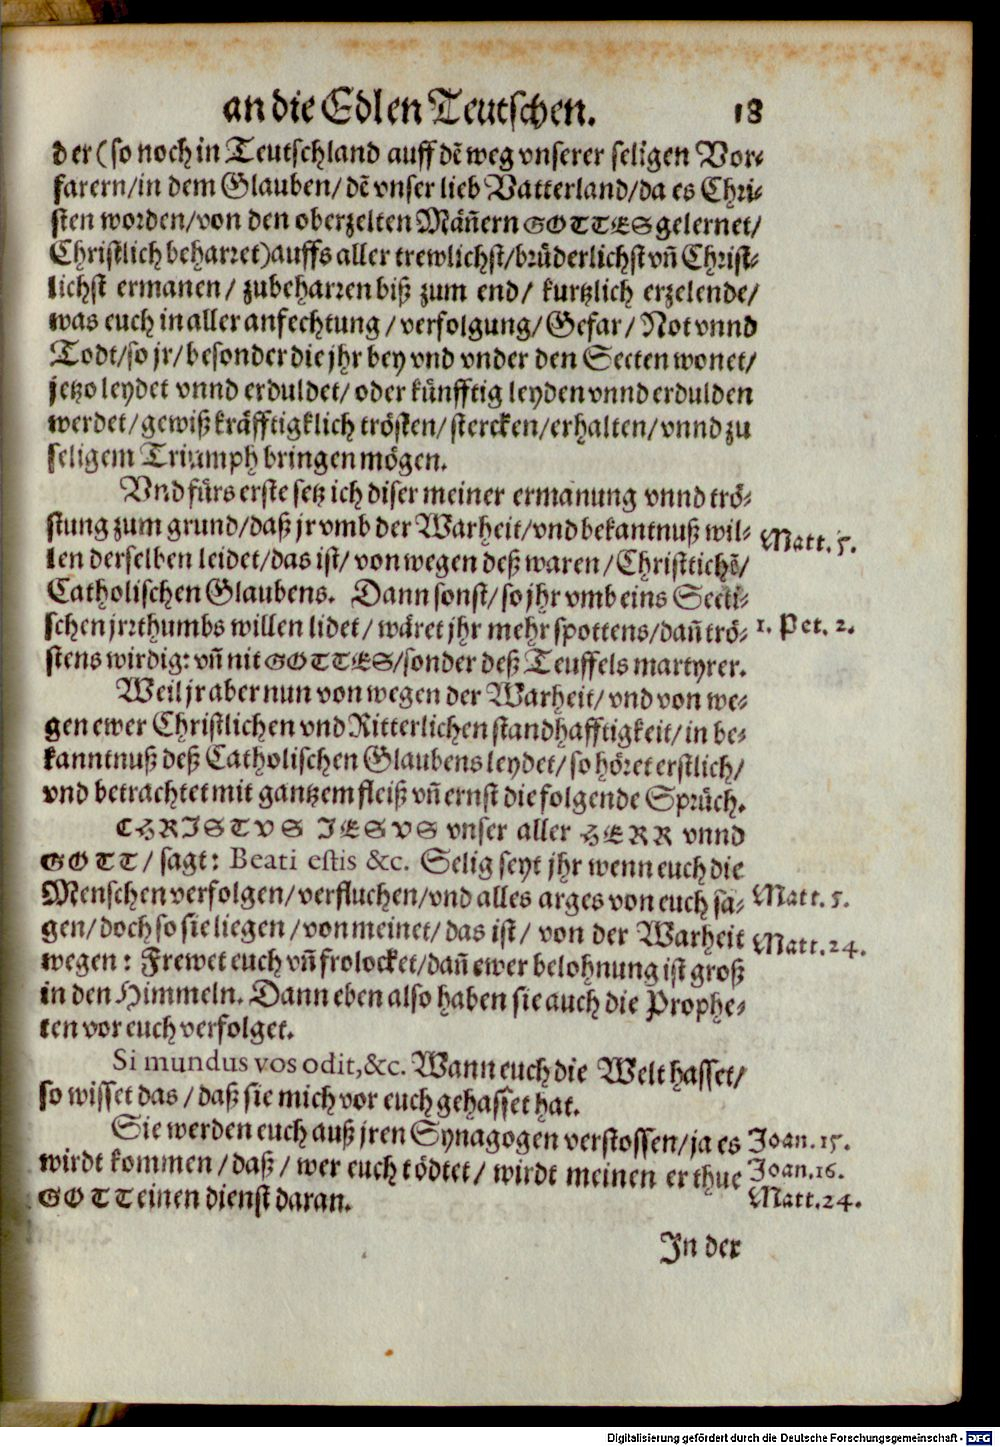 an die Edlen Teutschen. 18
der (so noch in Teutschland auff dē weg vnserer seligen Vor-
farern/in dem Glauben/dē vnser lieb Vatterland/da es Chri-
sten worden/von den oberzelten Mäñern GOTTES gelernet/
Christlich beharret)auffs aller trewlichst/brüderlichst vñ Christ-
lichst ermanen/ zubeharren biß zum end/ kurtzlich erzelende/
was euch in aller anfechtung/verfolgung/Gefar/Not vnnd
Todt/so jr/besonder die jhr bey vnd vnder den Secten wonet/
jetzo leydet vnnd erduldet/oder künfftig leyden vnnd erdulden
werdet/gewiß kräfftigklich trösten/stercken/erhalten/vnnd zu
seligem Triumph bringen mögen.
Vnd fürs erste setz ich diser meiner ermanung vnnd trö-
stung zum grund/daß jr vmb der Warheit/vnd bekantnuß wil- Matt. 5.
len derselben leidet/das ist/ von wegen deß waren/Christlichē/
Catholischen Glaubens. Dann sonst/so jhr vmb eins Secti-
schen jrrthumbs willen lidet/ wäret jhr mehr spottens/dañ trö- 1. Pet. 2.
stens wirdig: vñ nit GOTTES/sonder deß Teuffels martyrer.
Weil jr aber nun von wegen der Warheit/vnd von we-
gen ewer Christlichen vnd Ritterlichen standhafftigkeit/in be-
kanntnuß deß Catholischen Glaubens leydet/so höret erstlich/
vnd betrachtet mit gantzem fleiß vñ ernst die folgende Sprüch.
CHRISTVS JESVS vnser aller HERR vnnd
GOTT/ sagt: Beati estis &c. Selig seyt jhr wenn euch die
Menschen verfolgen/verfluchen/vnd alles arges von euch sa- Matt. 5.
gen/doch so sie liegen/von meinet/das ist/ von der Warheit Matt. 24.
wegen: Frewet euch vñ frolocket/dañ ewer belohnung ist groß
in den Himmeln. Dann eben also haben sie auch die Prophe-
ten vor euch verfolget.
Si mundus vos odit, &c. Wann euch die Welt hasset/
so wisset das/daß sie mich vor euch gehasset hat.
Sie werden euch auß jren Synagogen verstossen/ja es Joan. 15.
wirdt kommen/daß/wer euch tödtet/ wirdt meinen er thue Joan. 16.
GOTT einen dienst daran. Matt. 24.
In der
Digitalisierung gefördert durch die Deutsche Forschungsgemeinschaft - DFG